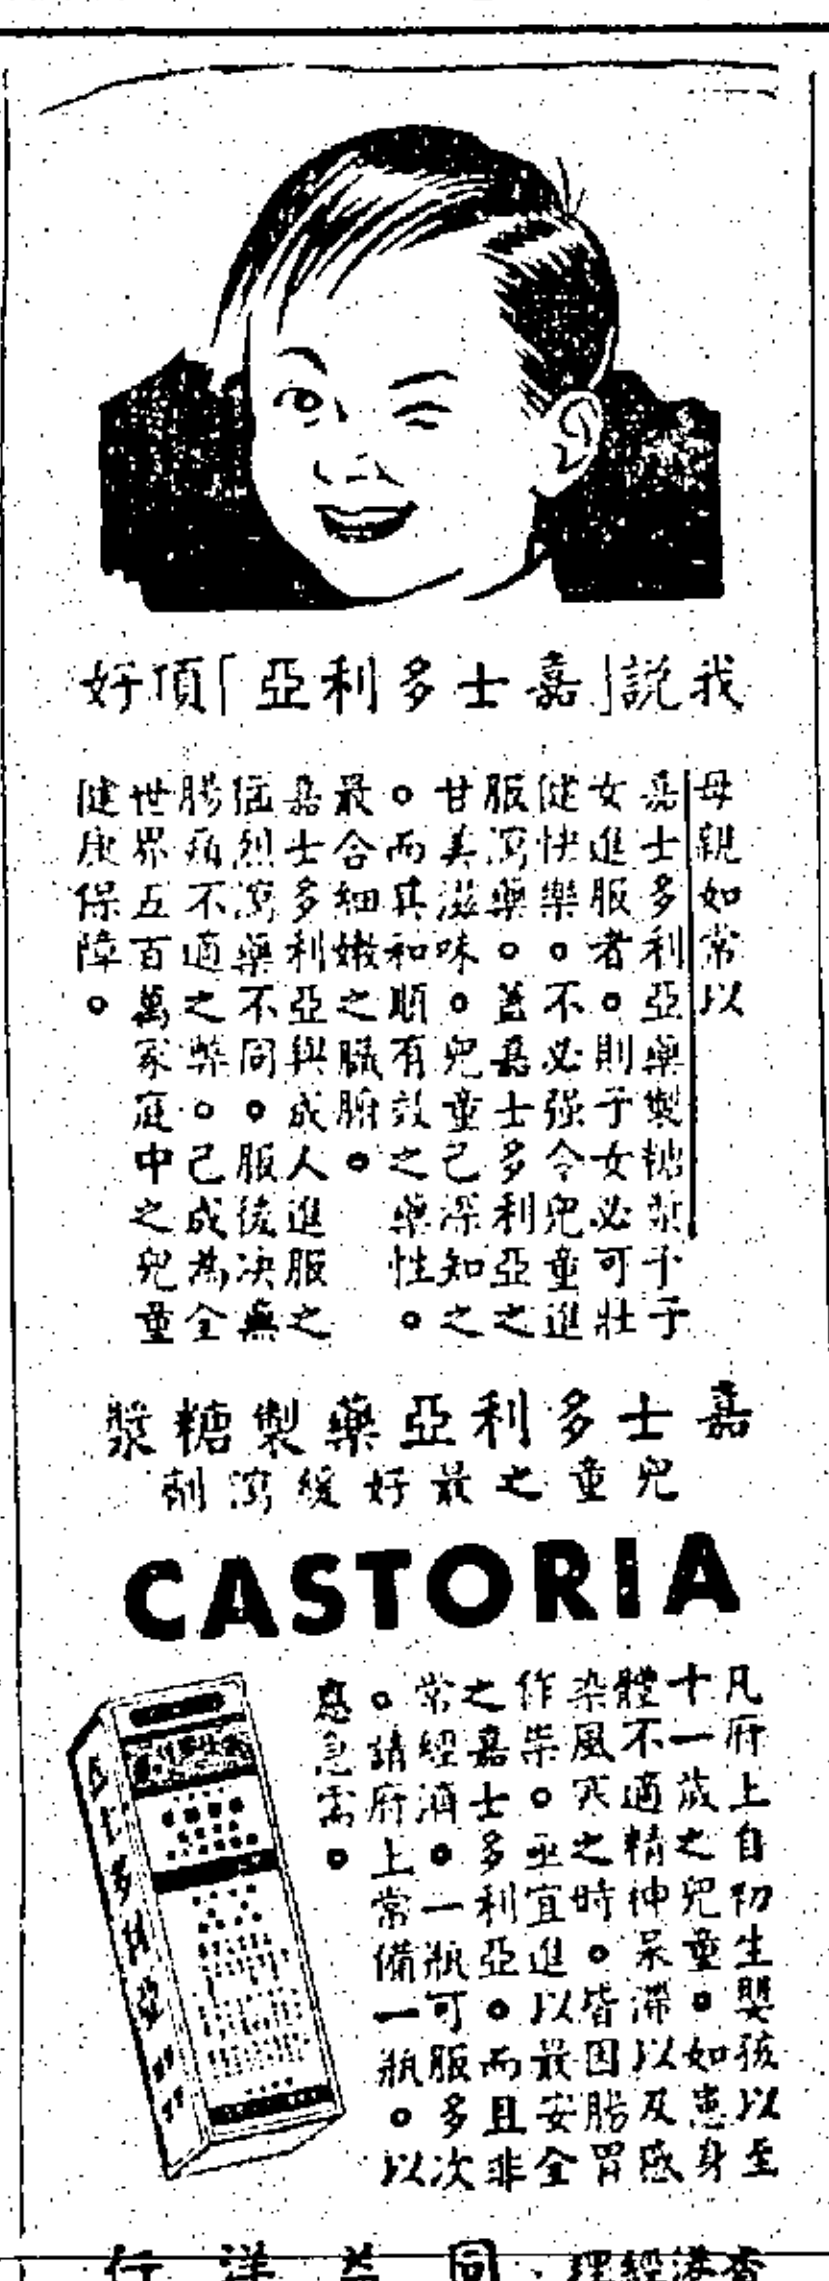 我説「嘉士多利亞」頂好
母親如常以
嘉士多利亞藥製糖漿予子
女進服者。則子女必可壯
健快樂。不必强令兒童進
服瀉藥。蓋嘉士多利亞之
甘美滋味。兒童己深知之
。而其和順有效之藥性。
最合細嫩之臟腑。
嘉士多利亞與成人進服之
猛烈瀉藥不同。服後决無
腸痛不適之弊。己成為全
世界五百萬家庭中之兒童
健康保障。
嘉士多利亞藥製糖漿
兒童之最好緩瀉劑
CASTORIA
凡府上自初生嬰孩以至
十一歲之兒童。如患身
體不適精神呆滯以及感
染風寒之時。皆因腸胃
作祟。亟宜進以最安全
之嘉士多利亞。而且非
常經濟。一瓶可服多次
。請府上常備一瓶。以
應急需。
香港經理
同益洋行